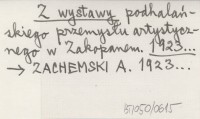 Z wystawy podhalań-
skiego przemysłu artystycz-
nego w Zakopanem. 1923...
→ ZACHEMSKI A. 1923...